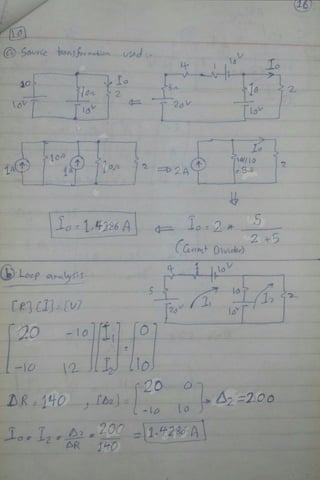 16
10
(a) Source transformation used :-
4 1 10V I0
10 10Ω I0 2
10V 10V
5Ω 20V 10 10V 2
⇐
1A 10Ω 1A 10Ω 2 ⇒ 2A I0 10/10 = 5Ω 2
⇓
I0 = 1.4286 A ⇐ I0 = 2 * 5 / (2+5)
(Current Divider)
(b) Loop analysis
4 1 10V
[R][I]=[V]
5 20V I1 10 10V I2 2
[20 -10; -10 12] [I1; I2] = [0; 10]
ΔR = 140 , [Δ2] = [20 0; -10 10] → Δ2 = 200
I0 = I2 = Δ2/ΔR = 200/140 = 1.4286 A